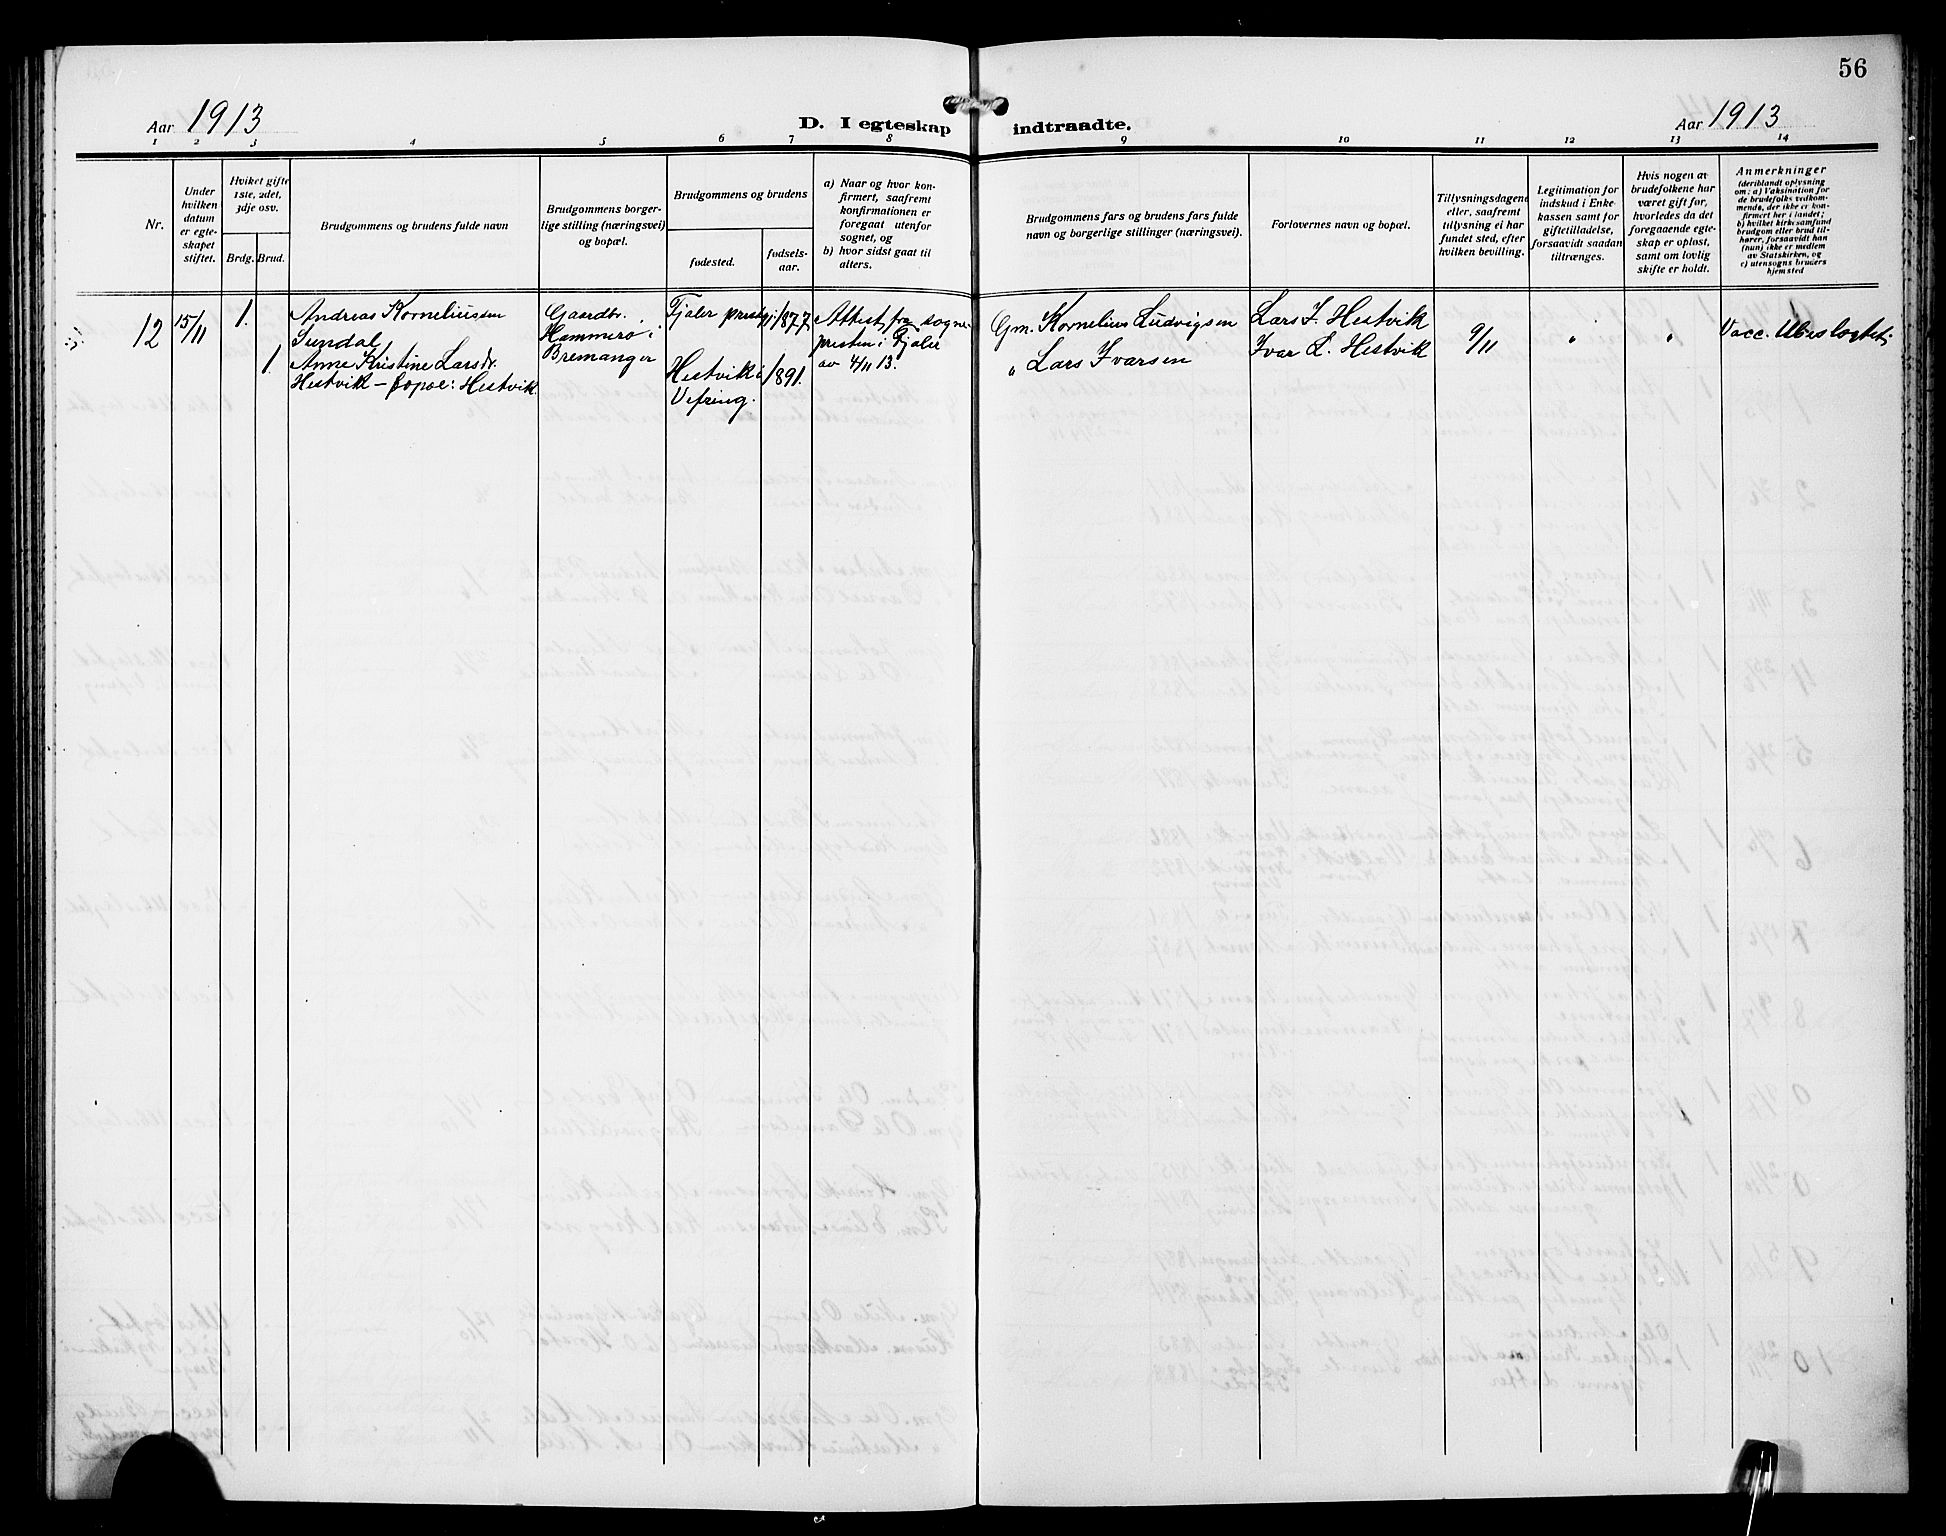 56
Aar 1913
D. I egteskap indtraadte.
Aar 1913
1 2 3 4 5 6 7 8 9 10 11 12 13 14
Nr.
Under
hvilken
datum
er egte-
skapet
stiftet.
Hviket gifte
1ste, 2det,
3dje osv.
Brdg. Brud.
Brudgommens og brudens fulde navn
Brudgommens borger-
lige stilling (næringsvei)
og bopæl.
Brudgommens og brudens
fødested.
fødsels-
aar.
a) Naar og hvor kon-
firmert, saafremt
konfirmationen er
foregaat utenfor
sognet, og
b) hvor sidst gaat til
alters.
Brudgommens fars og brudens fars fulde
navn og borgerlige stillinger (næringsvei).
Forlovernes navn og bopæl.
Tillysningsdagene
eller, saafremt
tillysning ei har
fundet sted, efter
hvilken bevilling.
Legitimation for
indskud i Enke-
kassen samt for
giftetilladelse,
forsaavidt saadan
tiltrænges.
Hvis nogen av
brudefolkene har
været gift før,
hvorledes da det
foregaaende egte-
skap er opløst,
samt om lovlig
skifte er holdt.
Anmerkninger
(deriblandt oplysning
om: a) Vaksination for
de brudefolks vedkom-
mende, der ikke er kon-
firmert her i landet;
b) hvilket kirkesamfund
brudgom eller brud til-
hører, forsaavidt han
(hun) ikke er medlem
av Statskirken, og
c) utensogns bruders
hjemsted
12
15/11
1.
1.
Andreas Korneliussen
Sundal
Anne Kristine Larsdr.
Hestvik – bopæl: Hestvik.
Gaardbr.
Hammerø i
Bremanger
Fjaler prestgj.
Hestvik i
Vefring.
1877
1891.
Attest fra sogne-
presten i Fjaler
av 4/11 13.
Gm. Kornelius Ludvigsen
" Lars Ivarsen
Lars I. Hestvik
Ivar L. Hestvik
9/11
"
"
Vacc. Ubeslægtet.